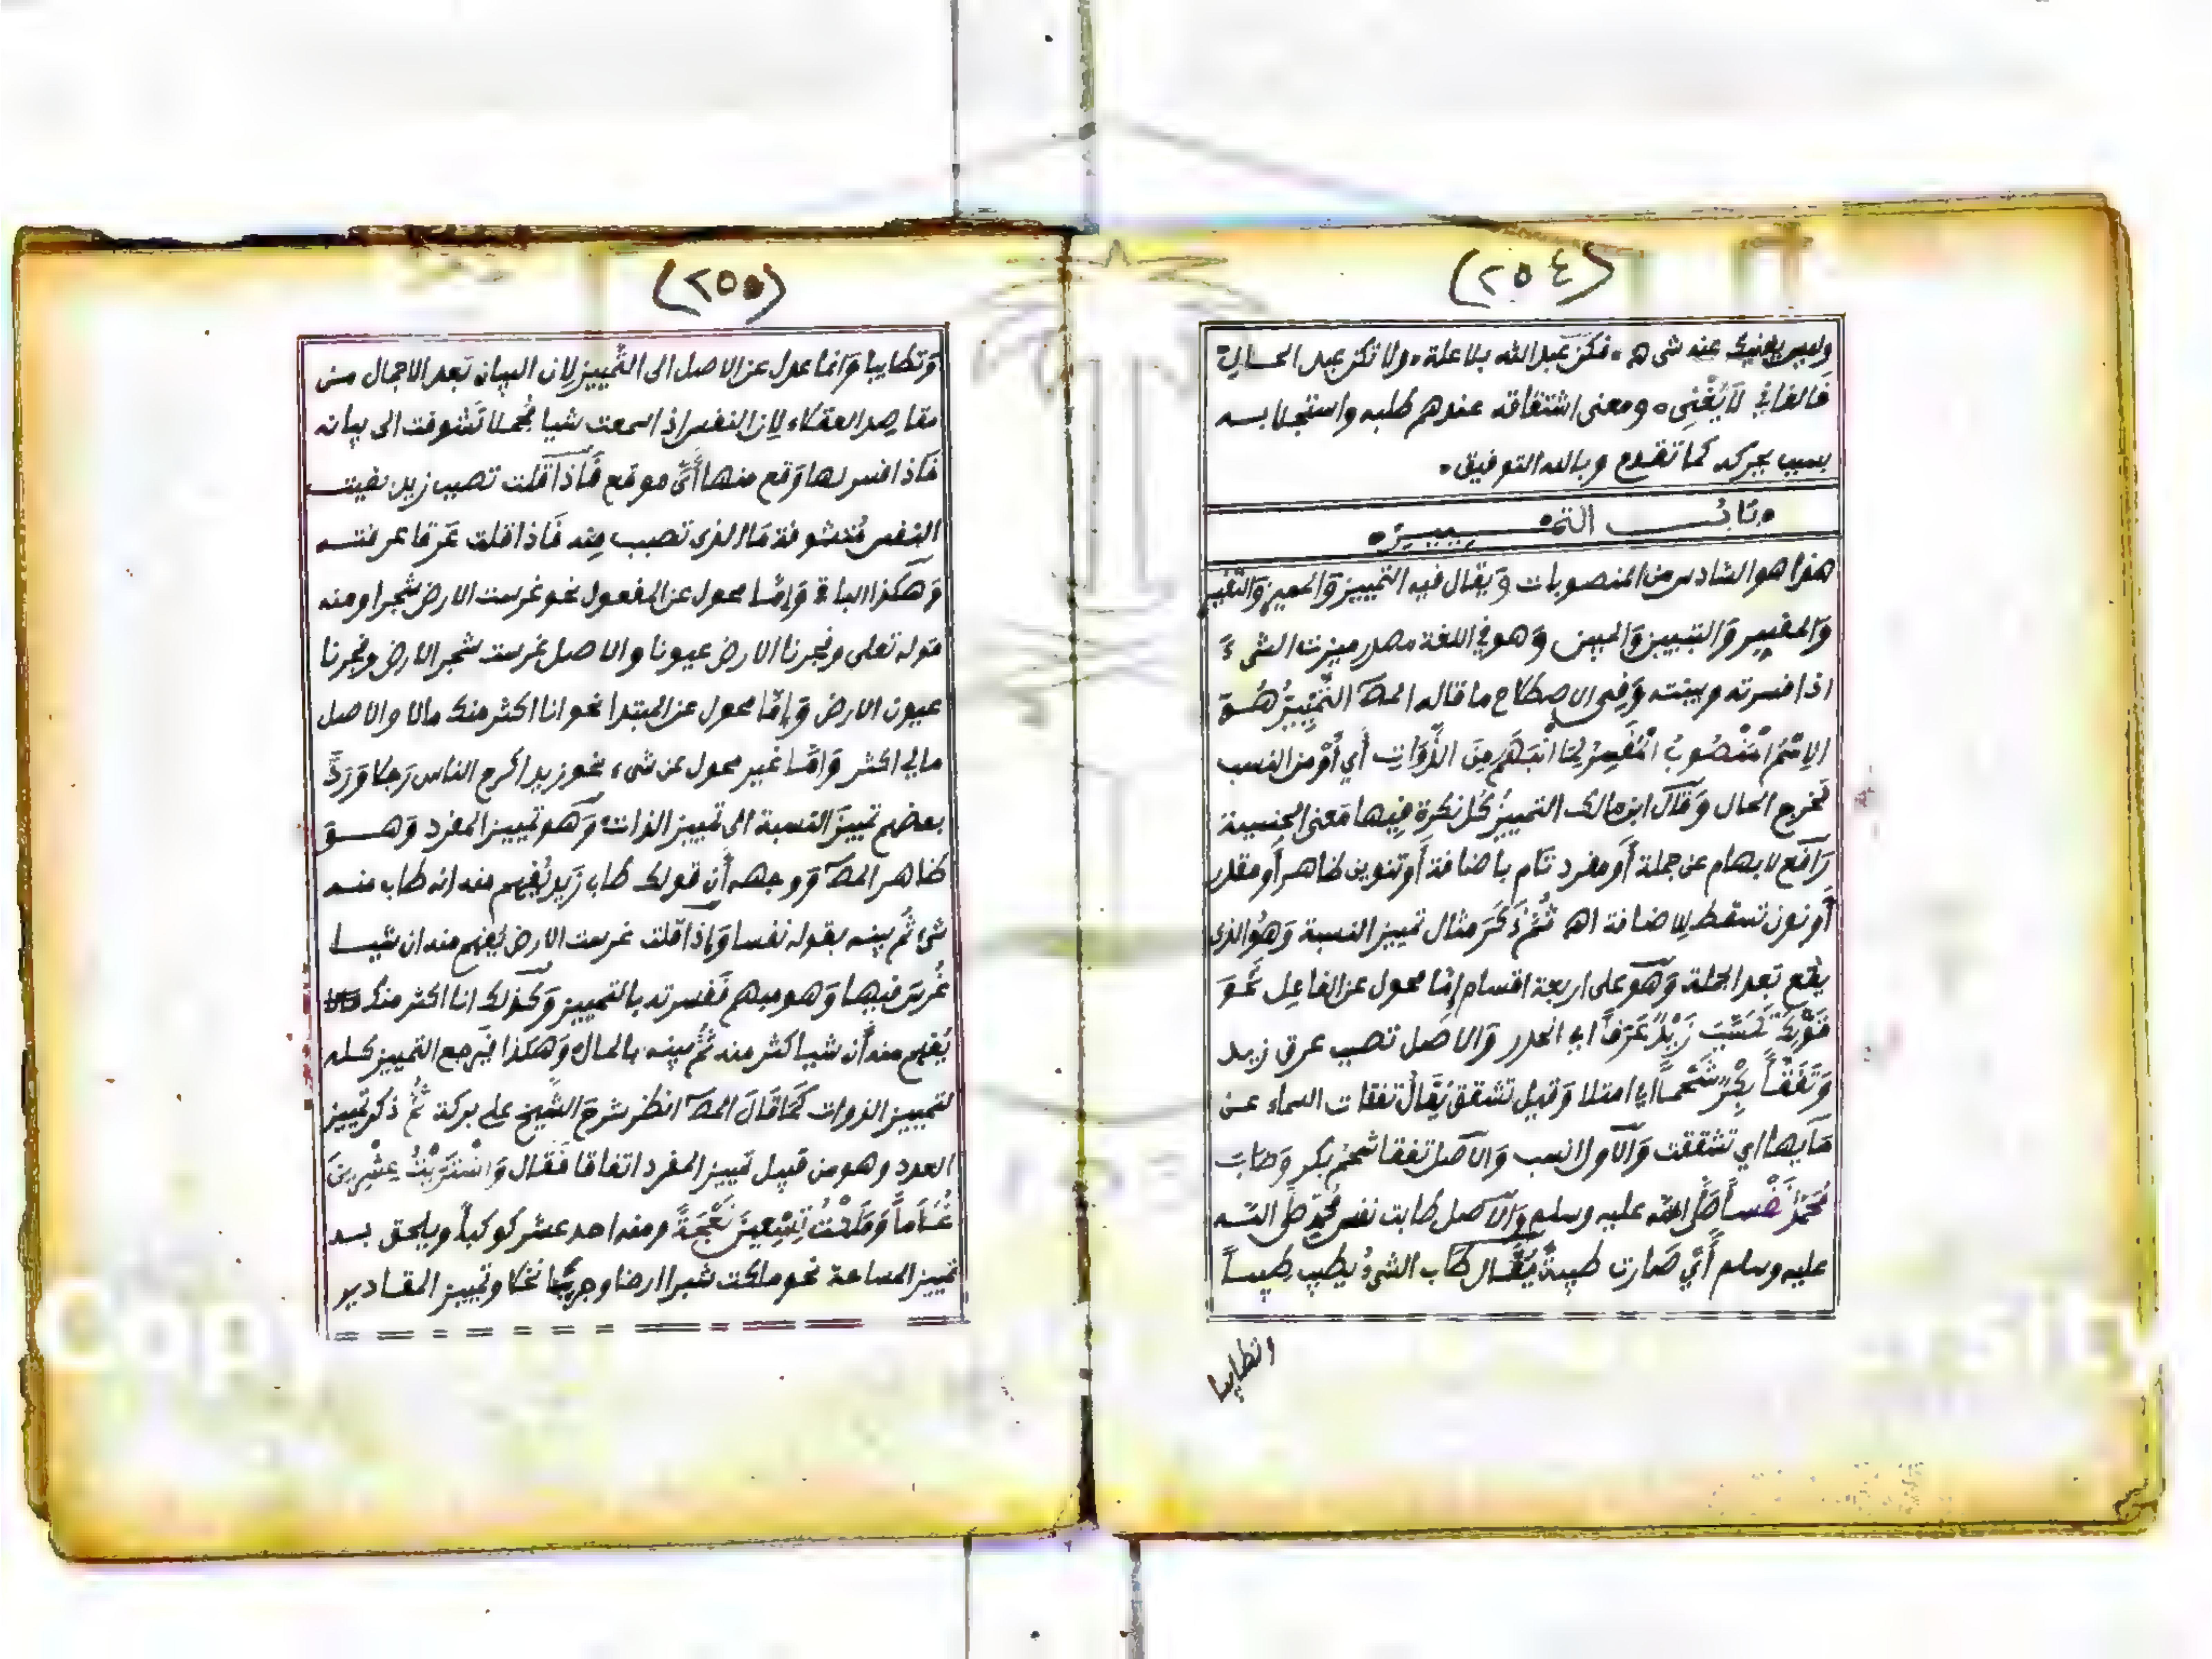 (٢٥٤)
وليس يغنيك عنه شئ هـ • فكن عبد الله بلا علة • ولا تكن عبد الحالة
فالفاني لا يُغْنِى • ومعنى اشتقاقه عندهم طلبه واستجلابه
بسبب يحركه كما تقدم وبالله التوفيق •
• بَابُ التمييز •
هذا هو السادس من المنصوبات وَيقال فيه التمييز وَالمميز وَالتفسير
وَالمفسر وَالتبيين وَالمبين وَهو في اللغة مصدر ميزت الشيء
اذا فسرته وبينته وَفِى الاصطلاح ما قاله المصَ التَّمْيِيزُ هُوَ
الِاسْمُ الْمَنْصُوبُ الْمُفَسِّرُ لِمَا انْبَهَمَ مِنَ الذَّوَاتِ أي أَوْ من النسب
فخرج الحال وَقَال ابن مالك التمييزُ كُل نكرة فِيها مَعنى الجنسية
رَافع لابهام عن جملة أَو مفرد تام باضافة أَو تنوين ظاهر أَو مقدر
أَو نون تسقط للاضافة اهـ ثُمَّ ذَكَرَ مثال تمييز النسبة وَهُو الذى
يقع بَعد الجملة وَهَو على اربعة اقسام إمَّا محول عن الفاعل نَحْوَ
قَوْلِكَ تَصَبَّبَ زَيْدٌ عَرَقاً اي انحدر وَالاصل تصبب عرق زيد
وَتَفَقَّأَ بَكْرٌ شَحْماً اي امتلا وَقيل تشقق يُقَالُ تفقات السماء عن
مَآيها اي تشققت وَالاول انسب وَالاصل تفقا شحم بكر وَطَابَ
مُحَمَّدٌ نَفْساً صَلَّى الله عليه وسلم وَالاصل طابت نفس مُحمدٍ صلى الله
عليه وسلم أَيْ صَارت طيبةً يُقَال طَاب الشئُ يطيب طيباً
وتطايبا
(٢٥٥)
وَتطايبا وَانما عدل عن الاصل الى التَّمييز لان البيان بَعد الاجمال من
مقاصد العقلاء لان النفس اذا سمعت شيا مُجملا تَشَوفت الى بيانه
فَاذا فسر لها وَقع منها أَىَّ موقع فَاذا قلت تصبب زيد بقيت
النفس مُتشوفة مَا الذى تصبب مِنه فَاذا قلت عَرقا عرفته
وَهكذا الباقي وَإِمَّا محول عن المفعول نحو غرست الارض شجرا ومنه
قوله تعلى وفجرنا الارض عيونا والاصل غرست شجر الارض وفجرنا
عيون الارض وَإِمَّا محول عن المبتدا نحو انا اكثر منك مالا والاصل
مالي اكثر وَامَّا غير محول عن شىء نحو زيد اكرم الناس رَجلا وَرَدَّ
بعضهم تمييزَ النسبة الى تمييز الذات وَهو تمييز المفرد وَهو
ظاهر المصَ وَوجهه أَن قولك طاب زَيد يُفهم منه انه طاب منه
شئ ثُم بينه بقوله نفسا وَإذا قلت غرست الارض يُفهم منه ان شيا
غُرسَ فيها وَهو مبهم فَفسرته بالتمييز وَكذلك انا اكثر منك
يُفهم منه أن شيا كثر منه ثُمَّ بينه بالمال وَهكذا فيرجع التمييز كله
لتمييز الذوات كَمَا قَالَ المصَ انظر شرحَ الشَّيخ على بركة ثُمَّ ذكر تمييز
العدد وهو من قبيل تمييز المفرد اتفاقا فَقال وَاشْتَرَيْتُ عِشْرِينَ
غُلَاماً وَمَلَكْتُ تِسْعِينَ نَعْجَةً ومنه احد عشر كوكباً ويلحق به
تمييز المساحة نحو ملكت شبرا ارضا وجريبا نخلا وتمييز المقادير